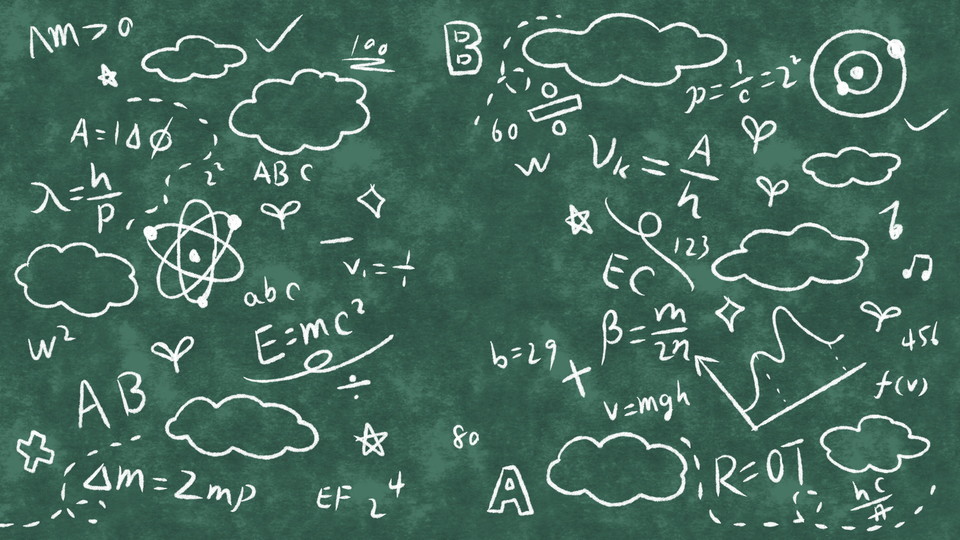 Λm > 0
100
A = 1Δϕ
2²
ABC
λ = h/p
v₁ = 1/1
abc
E=mc²
w²
÷
AB
Δm = 2mp
EF 2⁴
B
p = 1/c = 2²
÷
60
w
Vk = A/h
123
EC
β = m/2n
456
b=29
+
f(v)
v=mgh
80
R=0T
A
hc/A